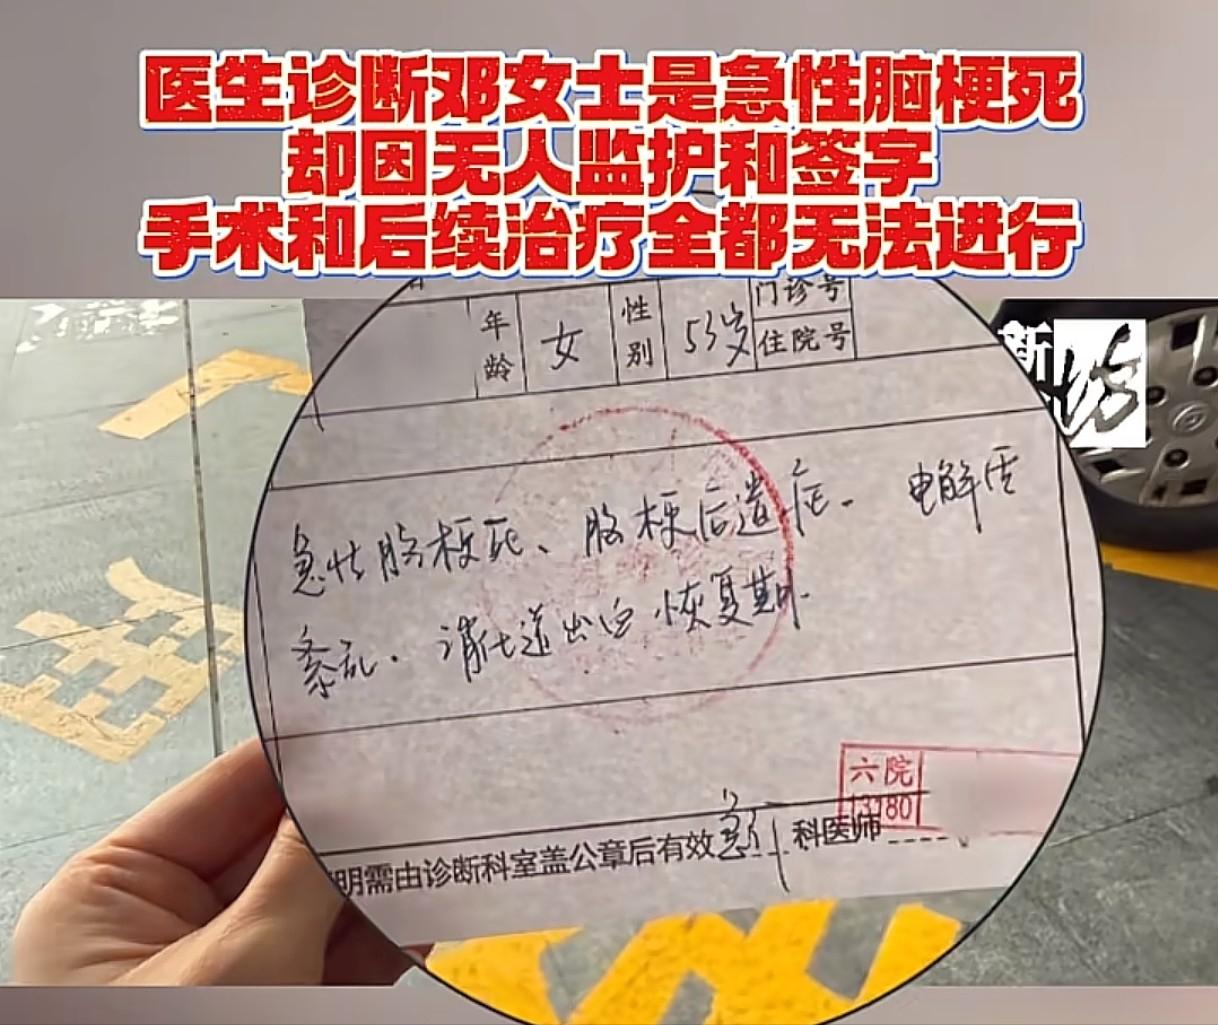 医生诊断邓女士是急性脑梗死
却因无人监护和签字
手术和后续治疗全都无法进行
年龄 女 性别 53岁 门诊号
住院号
新
急性脑梗死、脑梗后遗症. 电解质
紊乱. 消化道出血恢复期.
六院
13180
明需由诊断科室盖公章后有效 急诊 科医师